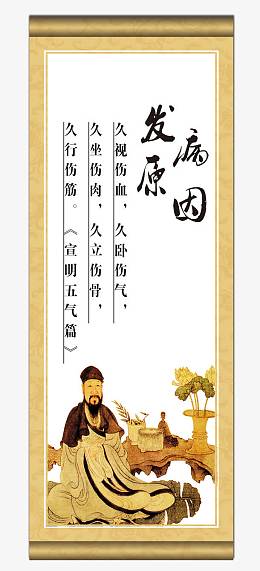 发病原因
久视伤血，久卧伤气，
久坐伤肉，久立伤骨，
久行伤筋。《宣明五气篇》